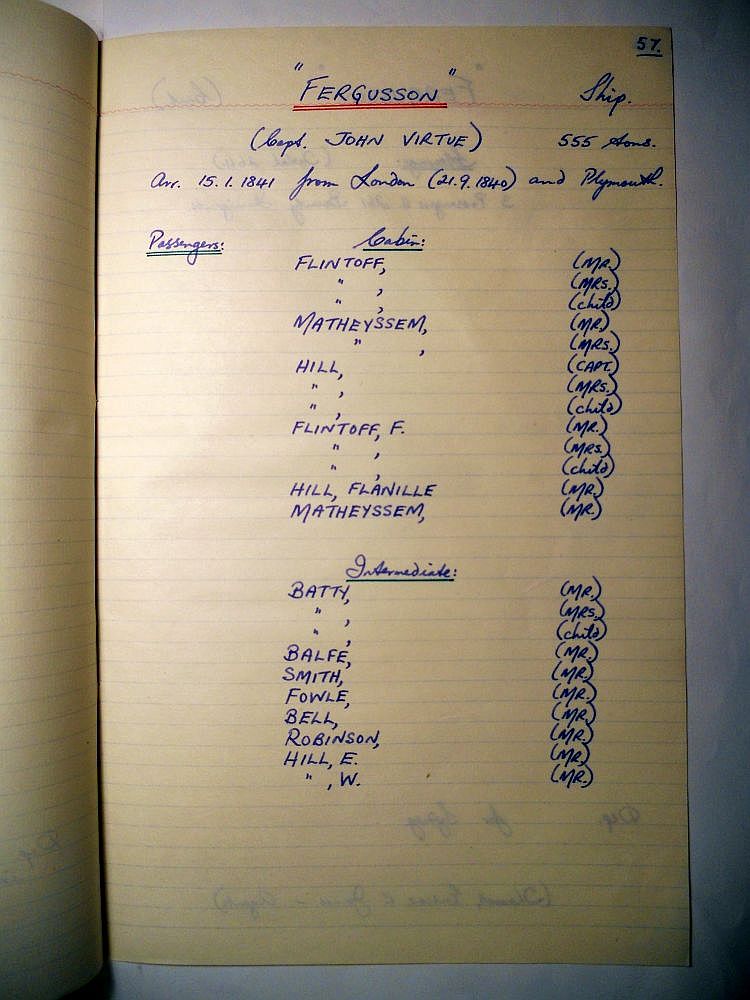 57.
"FERGUSSON" Ship.
(Capt. JOHN VIRTUE) 555 tons.
Arr. 15.1.1841 from London (21.9.1840) and Plymouth.
Passengers: Cabin:
FLINTOFF, (MR.)
" , (MRS.)
" , (child)
MATHEYSSEM, (MR.)
" , (MRS.)
HILL, (CAPT.)
" , (MRS.)
" , (child)
FLINTOFF, F. (MR.)
" , (MRS.)
" , (child)
HILL, FLANILLE (MR.)
MATHEYSSEM, (MR.)
Intermediate:
BATTY, (MR.)
" , (MRS.)
" , (child)
BALFE, (MR.)
SMITH, (MR.)
FOWLE, (MR.)
BELL, (MR.)
ROBINSON, (MR.)
HILL, E. (MR.)
" , W. (MR.)